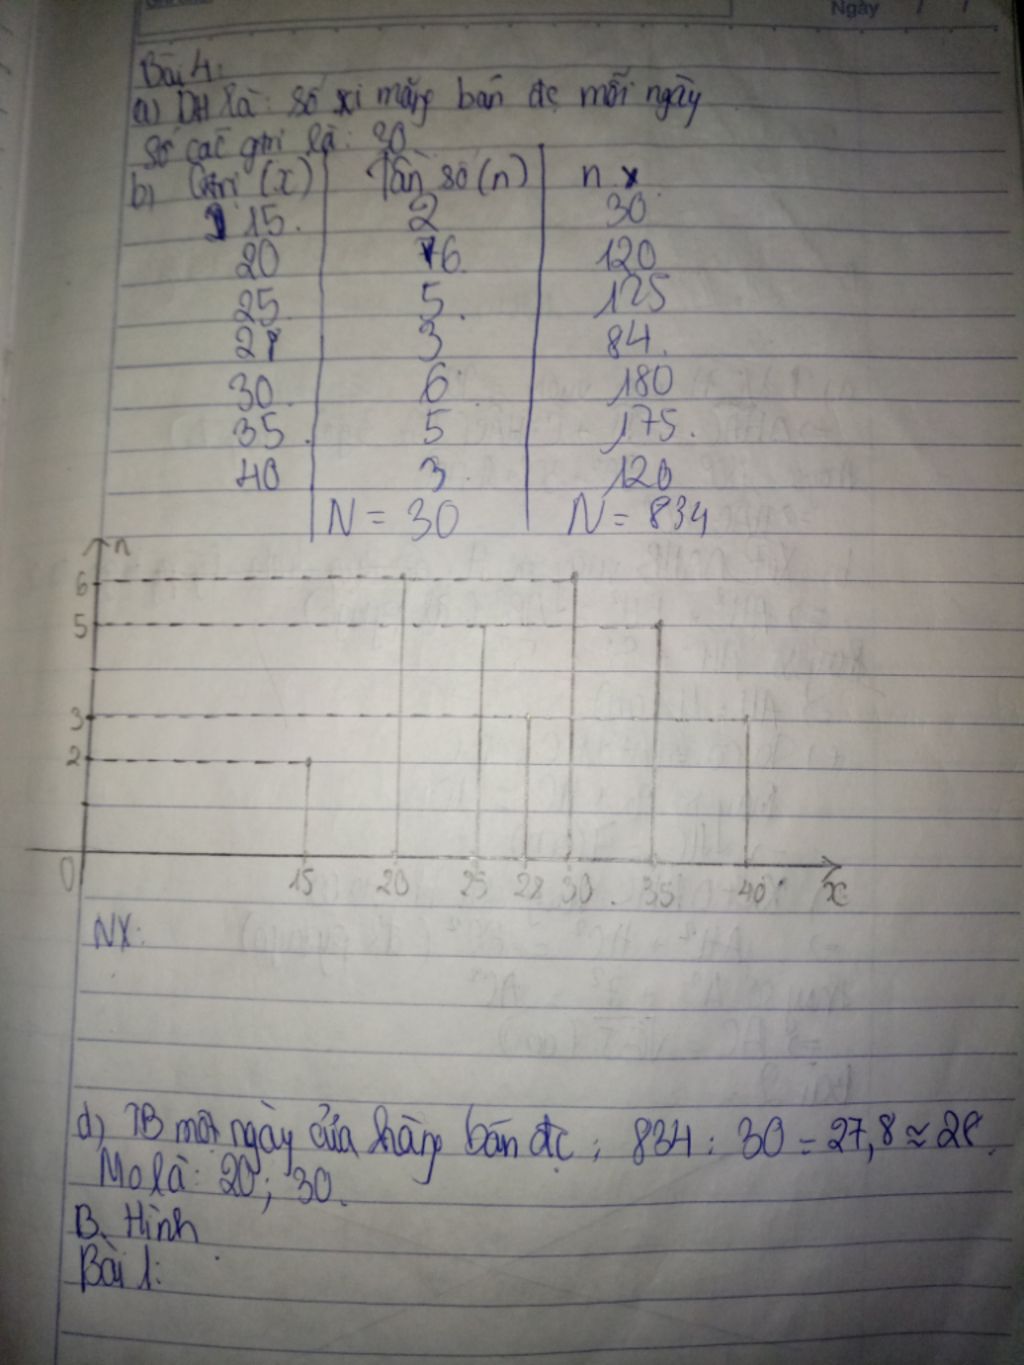 Ngày / /
Bài 4:
a) DH là: số xi măng bán đc mỗi ngày
số các gtri là: 30
b) Gtri (x) Tần số (n) n x
15. 2 30
20 6 120
25 5. 125
28 3 84.
30. 6 180
35. 5 175.
40 3. 120
N = 30 N = 834
n
6
5
3
2
0 15 20 25 28 30 35 40 x
NX:
d) TB một ngày cửa hàng bán đc: 834 : 30 = 27,8 ≈ 28.
Mo là: 20; 30.
B. Hình
Bài 1: